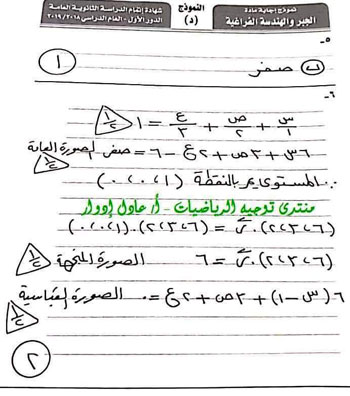 نموذج إجابة مادة
الجبر والهندسة الفراغية
النموذج
(د)
شهادة إتمام الدراسة الثانوية العامة
الدور الأول - العام الدراسي ٢٠١٨/٢٠١٩
٥-
ب صفر
١
٦-
س/١ + ص/٢ + ع/٣ = ١ ١/٢
٦س + ٣ص + ٢ع - ٦ = صفر الصورة العامة ١/٢
∴ المستوى يمر بالنقطة (١،٠،٠)
منتدى توجيه الرياضيات - أ/ عادل إدوار
(٦،٣،٢)·ر = (٦،٣،٢)·(١،٠،٠)
(٦،٣،٢)·ر = ٦ الصورة المتجهة ١/٢
٦(س - ١) + ٣ص + ٢ع = ٠ الصورة القياسية ١/٢
٢